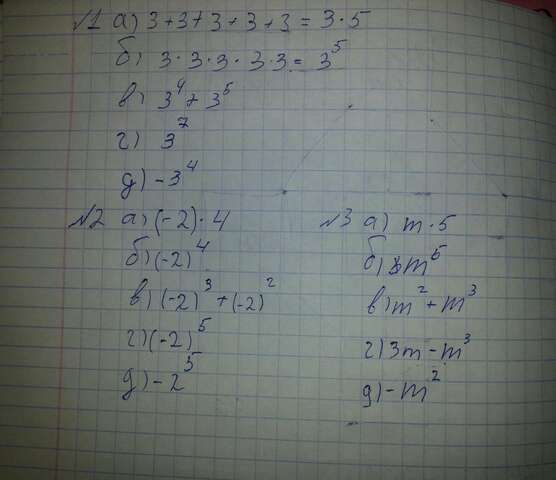 №1 а) 3+3+3+3+3 = 3·5
б) 3·3·3·3·3 = 3⁵
в) 3⁴+3⁵
г) 3⁷
д) -3⁴
№2 а) (-2)·4
б) (-2)⁴
в) (-2)³+(-2)²
г) (-2)⁵
д) -2⁵
№3 а) m·5
б) m⁵
в) m²+m³
г) 3m-m³
д) -m²